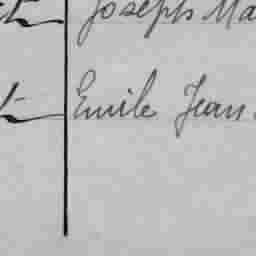 Joseph Ma
Emile Jean